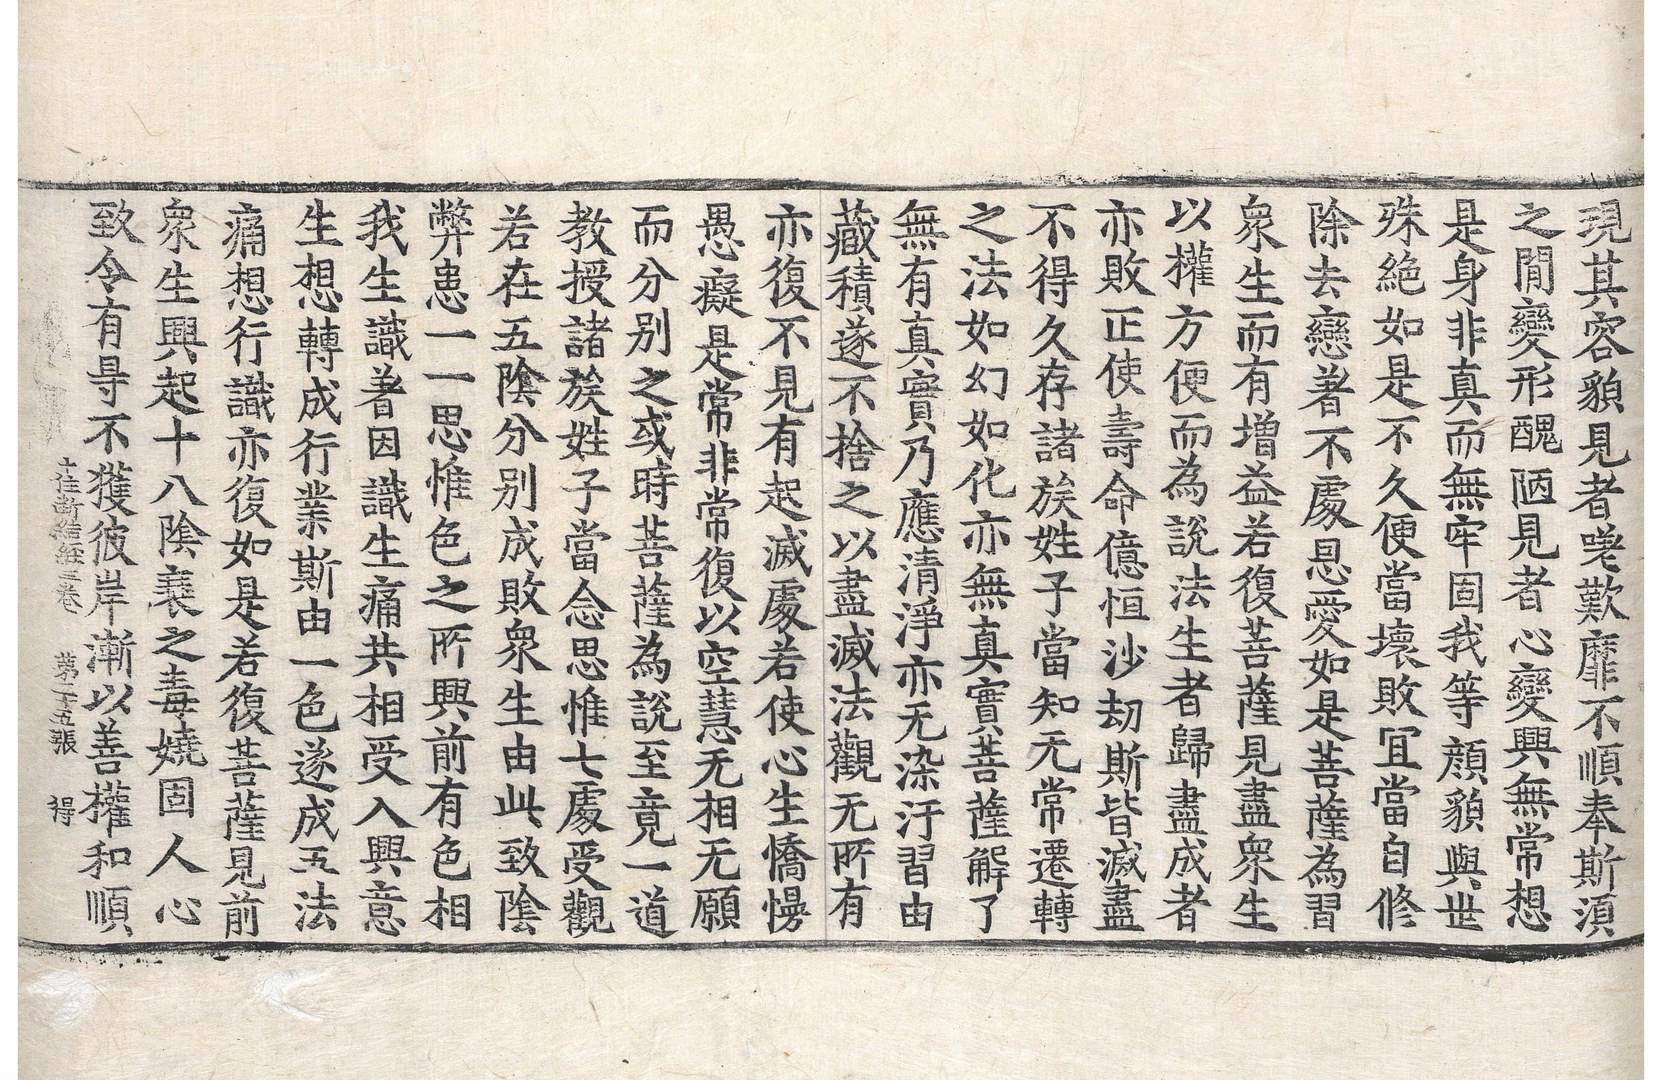 現其容䫉見者㖿歎靡不順奉斯湏
之閒變形醜陋見者心變興無常想
是身非真而無牢固我等顔䫉與世
殊絶如是不久便當壞敗冝當自修
除去戀著不處恩愛如是菩薩為習
衆生而有增益若復菩薩見盡衆生
以權方便而為說法生者歸盡成者
亦敗正使壽命億恒沙劫斯皆滅盡
不得久存諸族姓子當知无常遷轉
之法如幻如化亦無真實菩薩解了
無有真實乃應清淨亦无染汙習由
藏積遂不捨之以盡滅法觀无所有
亦復不見有起滅處若使心生憍慢
愚癡是常非常復以空慧无相无願
而分别之或時菩薩為說至竟一道
教授諸族姓子當念思惟七處受觀
若在五陰分别成敗衆生由此致陰
弊患一一思惟色之所興前有色相
我生識著因識生痛共相受入興意
生想轉成行業斯由一色遂成五法
痛想行識亦復如是若復菩薩見前
衆生興起十八陰衰之毒嬈固人心
致令有㝵不獲彼岸漸以善權和順
十住斷結經二卷 苐二十五張 得